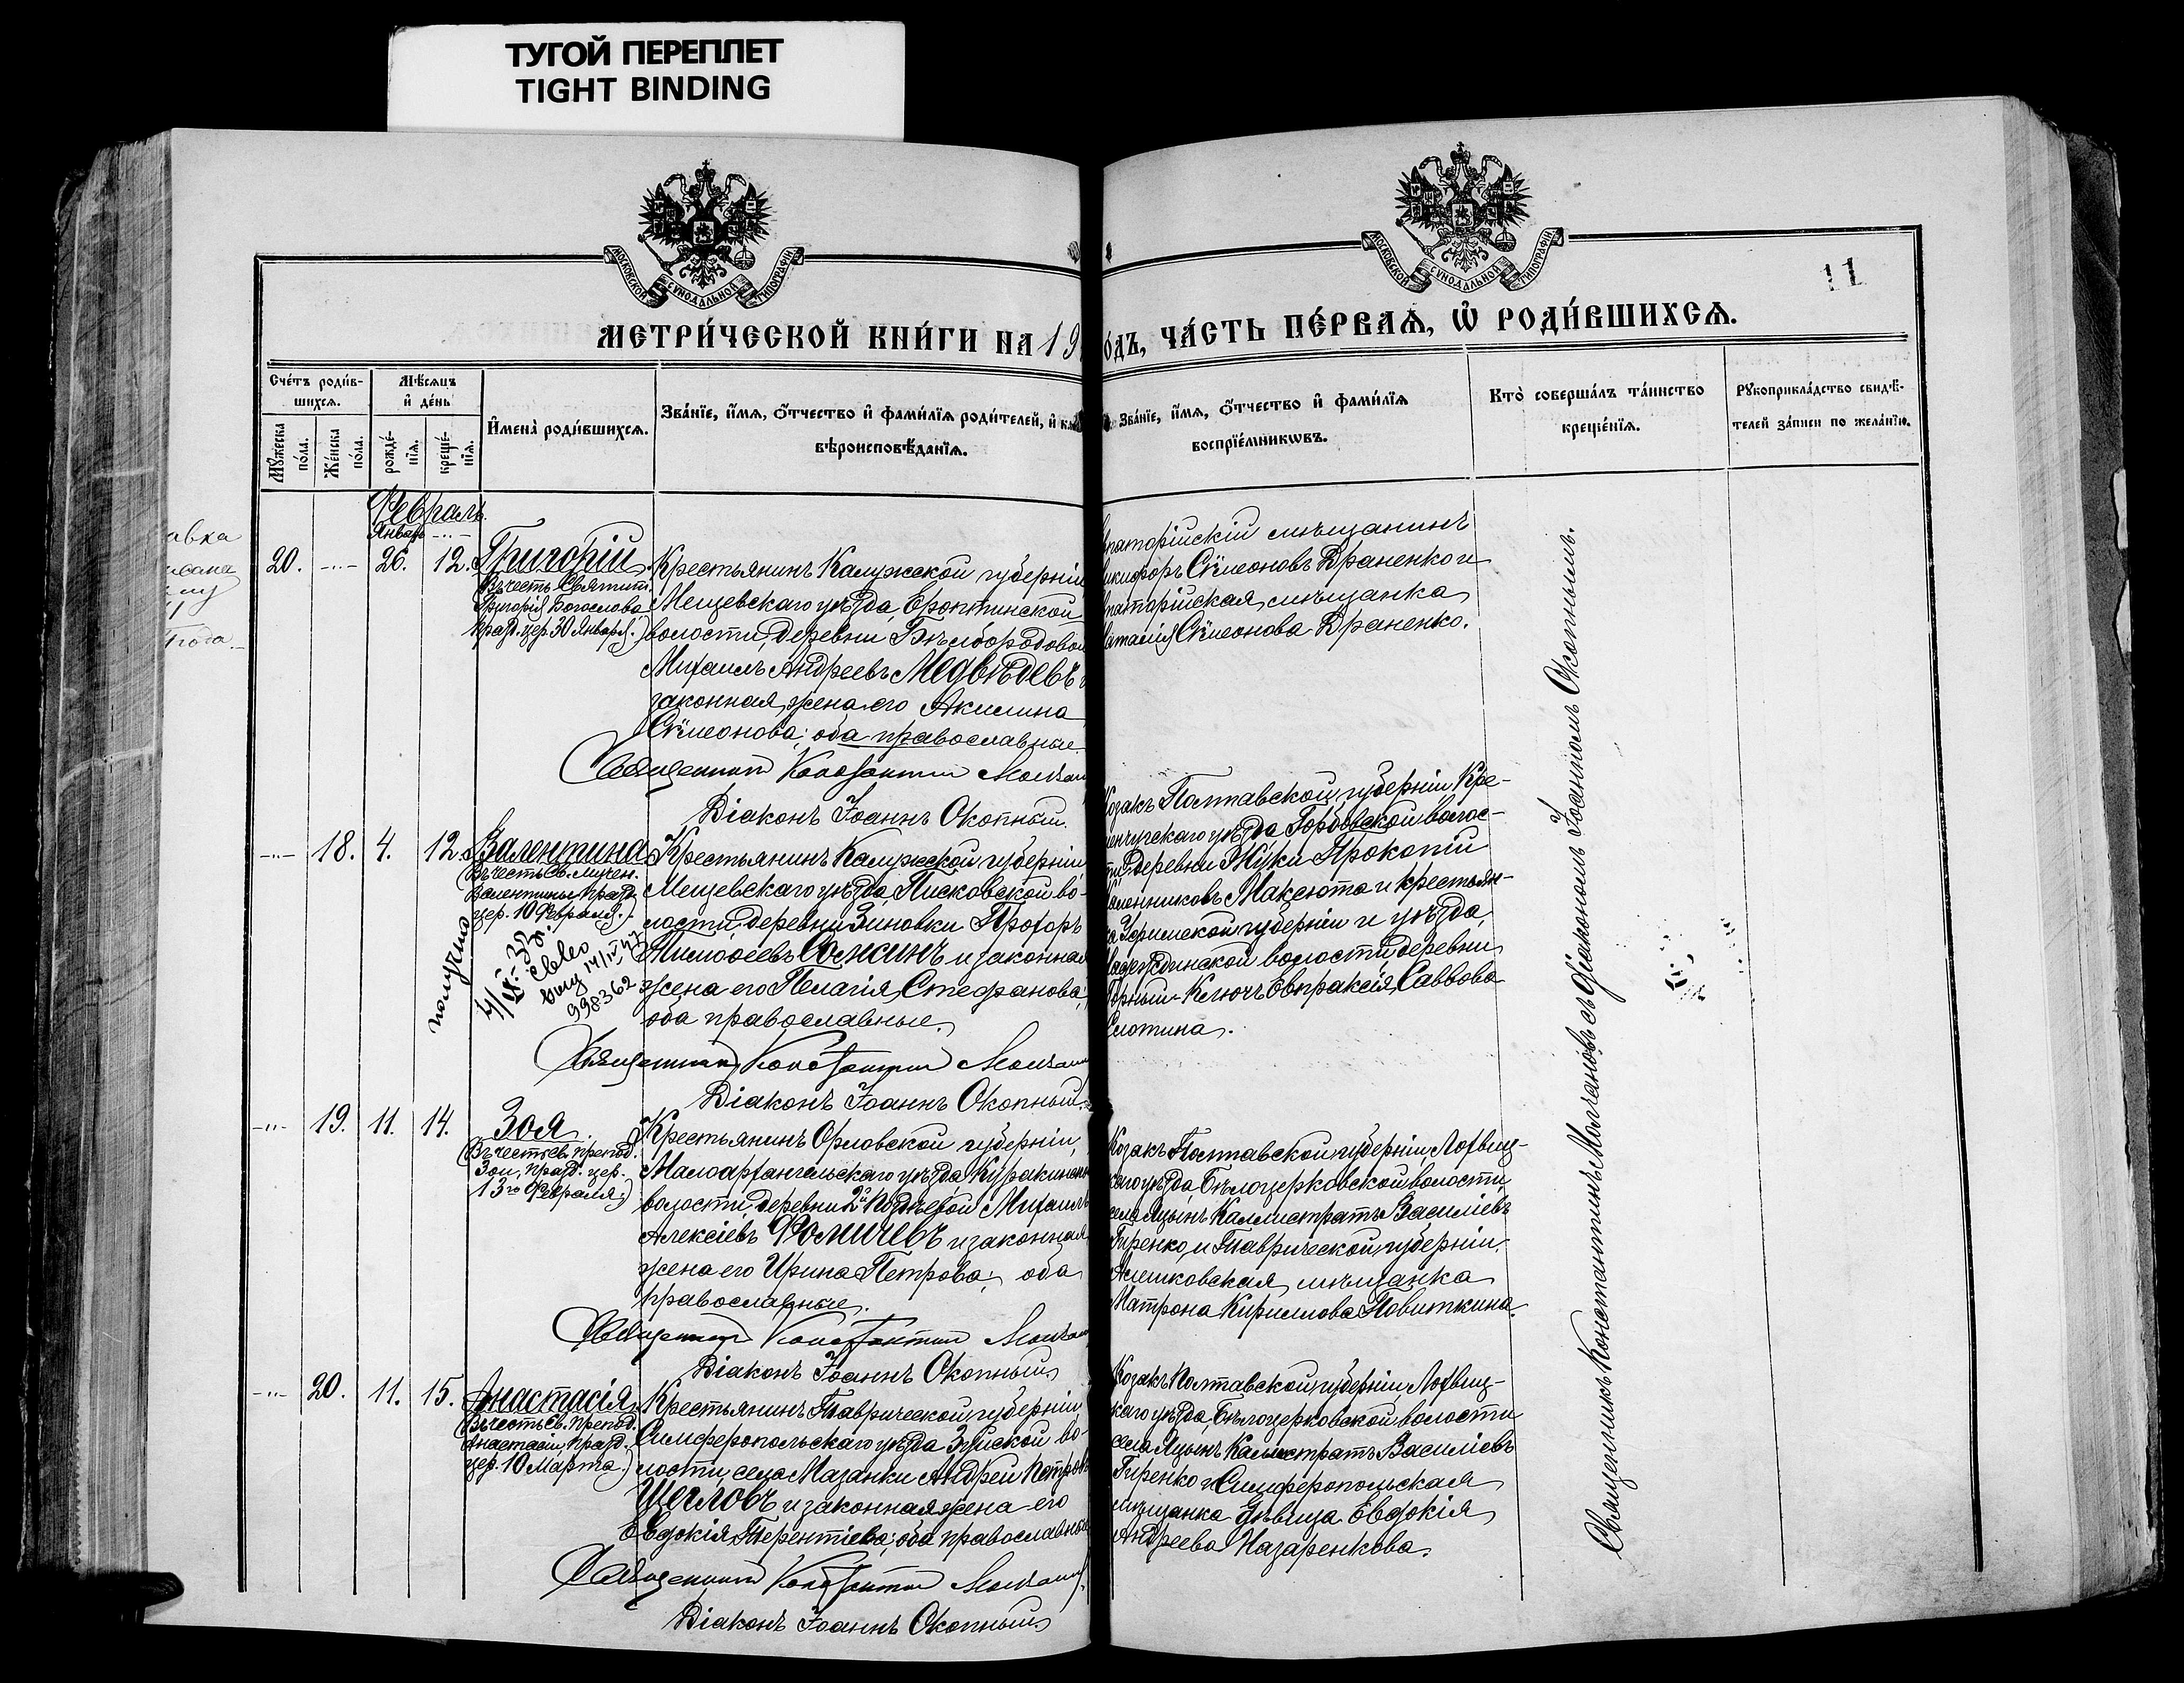 ТУГОЙ ПЕРЕПЛЕТ
TIGHT BINDING
МОСКОВСКОЙ СѴНОДАЛЬНОЙ ТИПОГРАФІИ
МОСКОВСКОЙ СѴНОДАЛЬНОЙ ТИПОГРАФІИ
11
МЕТРИ́ЧЕСКОЙ КНИ́ГИ НА 19
о́дъ, ЧА́СТЬ ПЕ́РВАѦ, Ѽ РОДИ́ВШИХСѦ.
Сче́тъ роди́в-
шихсѧ.
Мꙋ́жеска по́ла.
Же́нска по́ла.
Мѣ́сѧцъ
и҆ де́нь
рожде́-
нїѧ.
креще́-
нїѧ.
И҆мена̀ роди́вшихсѧ.
Зва́нїе, и҆́мѧ, ѻ҆́тчество и҆ фами́лїѧ роди́телей, и҆
вѣроисповѣ́данїѧ.
Зва́нїе, и҆́мѧ, ѻ҆́тчество и҆ фами́лїѧ
воспрїе́мникѡвъ.
Кто̀ соверша́лъ та́инство
креще́нїѧ.
Рꙋкоприкла́дство свидѣ́-
телей за́писи по жела́нїю.
Февраль.
Январь -"-
20. -"- 26. 12. Григорій
Въ честь Святит.
Григорія Богослова
празд. цер. 30 Января.)
Крестьянинъ Калужской губерніи
Мещевскаго уѣзда,
волости, деревни Бѣлбородовой
Михаилъ Андреевъ Медвѣдевъ
законная жена его Акилина
Сѵмеонова; оба православные.
Священникъ Константин Молчан
Діаконъ Іоаннъ Окопный.
паторійскій мѣщанинъ
икифоръ Сѵмеоновъ Драненко и
паторійская мѣщанка
аталія Сѵмеонова Драненко.
-"- 18. 4. 12. Валентина
Въ честь Св. мучен.
Валентины празд.
цер. 10 Февраля.
получено
998362
Крестьянинъ Калужской губерніи
Мещевскаго уѣзда, Писковской во-
лости, деревни Зиновки Прохоръ
Тимоѳеевъ Сомкинъ и законная
жена его Пелагія Стефанова;
оба православные.
Священникъ Константин Молчан
Діаконъ Іоаннъ Окопный.
Козакъ Полтавской губерніи, Кре-
менчугскаго уѣзда Горбовской волос-
ти, деревни Жуки Прокопій
Максюта и крестьян-
ка Уфимской губерніи и уѣзда,
Надеждинской волости, деревни
Горный-Ключъ Евпраксія Саввова
Слотина.
-"- 19. 11. 14. Зоя.
Въ честь св. препод.
Зои, празд. цер.
13го Февраля.)
Крестьянинъ Орловской губерніи,
Малоархангельскаго уѣзда, Куракинской
волости, деревни 2й Поздѣевой Михаилъ
Алексіевъ Фомичевъ и законная
жена его Ирина Петрова; оба
православные.
Священникъ Константин Молчан
Діаконъ Іоаннъ Окопный
Козакъ Полтавской губерніи, Лохвиц-
каго уѣзда, Бѣлоцерковской волости,
села Яцынъ Каллистратъ Василіевъ
Гиренко, и Таврической губерніи,
Алешковская мѣщанка
Матрона Кириллова Повиткина.
-"- 20. 11. 15. Анастасія.
Въ честь Св. препод.
Анастасіи, празд.
цер. 10 Марта.)
Крестьянинъ Таврической губерніи,
Симферопольскаго уѣзда Зуйской во-
лости, села Мазанки Андрей Петровъ
Щегловъ и законная жена его
Евдокія Терентіева; оба православные
Священникъ Константин Молчан
Діаконъ Іоаннъ Окопный
Козакъ Полтавской губерніи, Лохвиц-
каго уѣзда, Бѣлоцерковской волости
села Яцынъ Каллистратъ Василіевъ
Гиренко и Симферопольская
мѣщанка дѣвица Евдокія
Андреева Назаренкова.
Священникъ Константинъ Молчановъ съ Діакономъ Іоанномъ Окопнымъ.